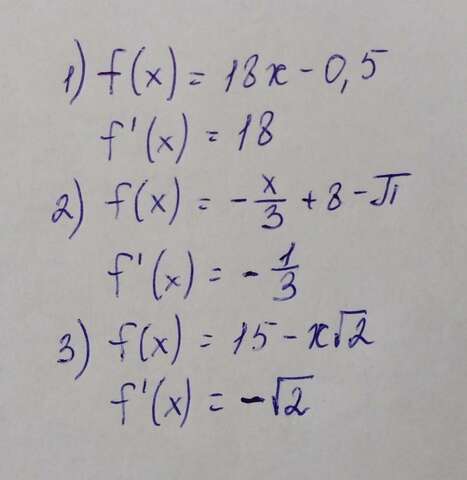 1) f(x) = 18x - 0,5
f'(x) = 18
2) f(x) = -x/3 + 8 - π
f'(x) = -1/3
3) f(x) = 15 - x√2
f'(x) = -√2